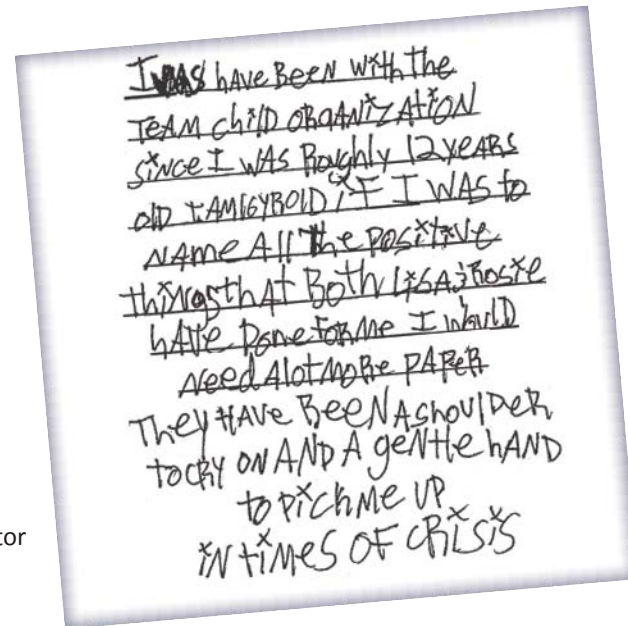 I WAS hAve BeeN With the
TeAM ChilD ORgANiZAtiON
siNce I WAS Roughly 12 yeARS
olD I AM 16 YR OlD iF I WAS to
NAMe All the positive
thiNgs thAt Both LiSA & Rosie
hAVe DoNe FoR Me I WoulD
Need A lot MoRe PAPeR
They HAVe BeeN A shoulDeR
to CRY ON AND A geNtle hAND
to pick Me UP
iN tiMeS OF CRiSiS
tor